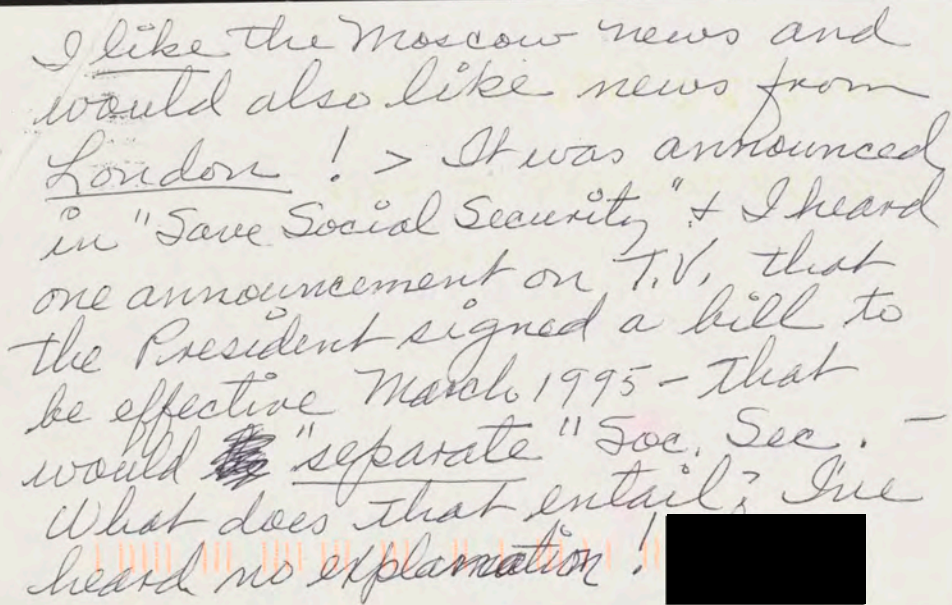 I like the Moscow news and
would also like news from
London ! > It was announced
in "Save Social Security" + I heard
one announcement on T.V. that
the President signed a bill to
be effective March 1995 - that
would "separate" Soc. Sec. -
What does that entail? I've
heard no explanation !